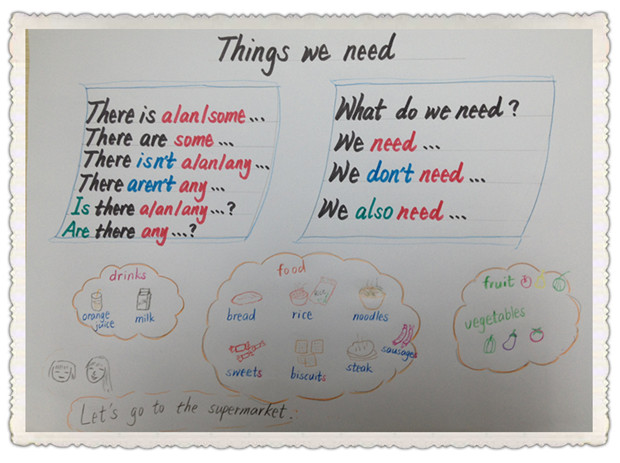 Things we need
There is a/an/some...
There are some...
There isn't a/an/any...
There aren't any...
Is there a/an/any...?
Are there any...?
What do we need?
We need...
We don't need...
We also need...
drinks
orange juice
milk
food
bread
rice
noodles
sweets
biscuits
steak
sausages
fruit
vegetables
Let's go to the supermarket.